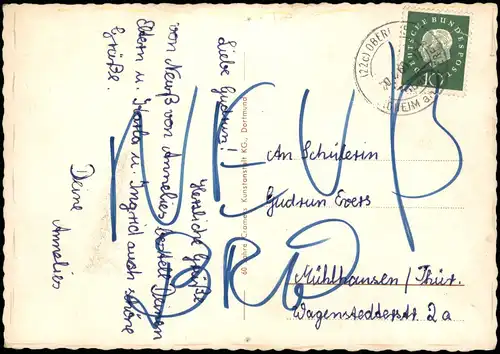 Liebe Gudrun!
Herzliche Grüße
von Neuß von Annelies bestell Deinen
Eltern u. Karla u. Ingrid auch schöne
Grüße.
Deine
Annelies
60 Jahre Cramers Kunstanstalt KG., Dortmund
DEUTSCHE BUNDESPOST
10
(22c) OBER
HEIM a.
An Schülerin
Gudrun Evers
Mühlhausen/Thür.
Wagenstedterstr. 2a
NEUß